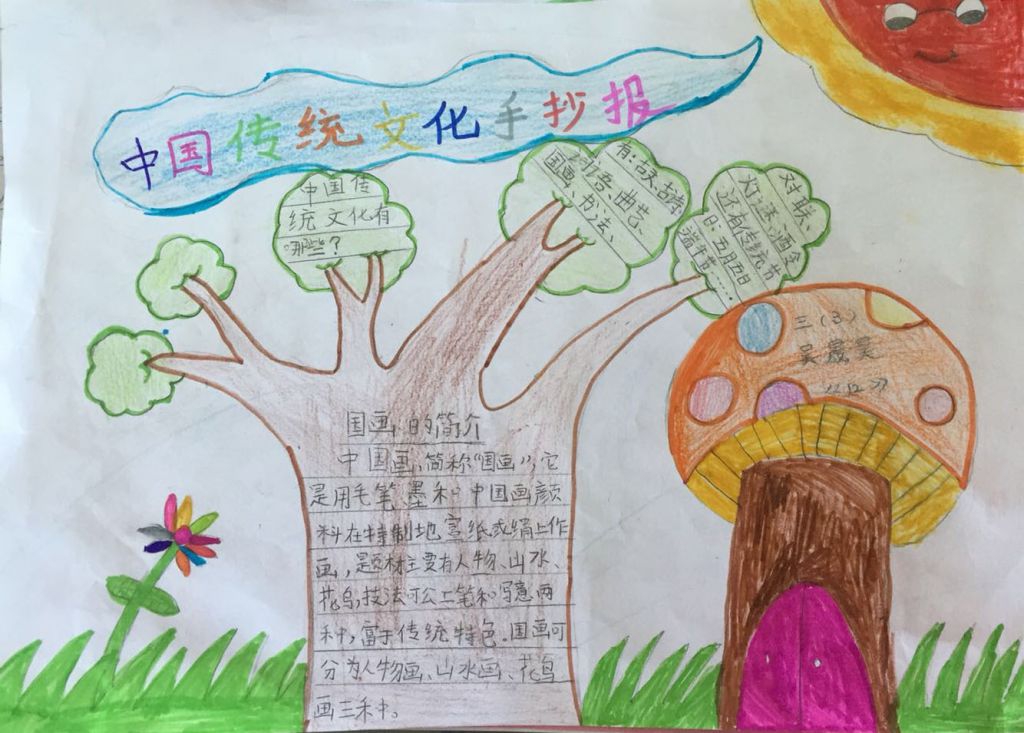 中国传统文化手抄报
中国传
统文化有
哪些？
有：古文、古诗、
词语、曲艺、
国画、书法、
对联、
灯谜、酒令
还有传统节
日：五月五日
端午节……
三（3）
吴晟昊
《12》
国画的简介
中国画，简称“国画”，它
是用毛笔、墨和中国画颜
料在特制地宣纸或绢上作
画，是题材主要有人物、山水、
花鸟，技法可公工笔和写意两
种，富于传统特色。国画可
分为人物画、山水画、花鸟
画三种。